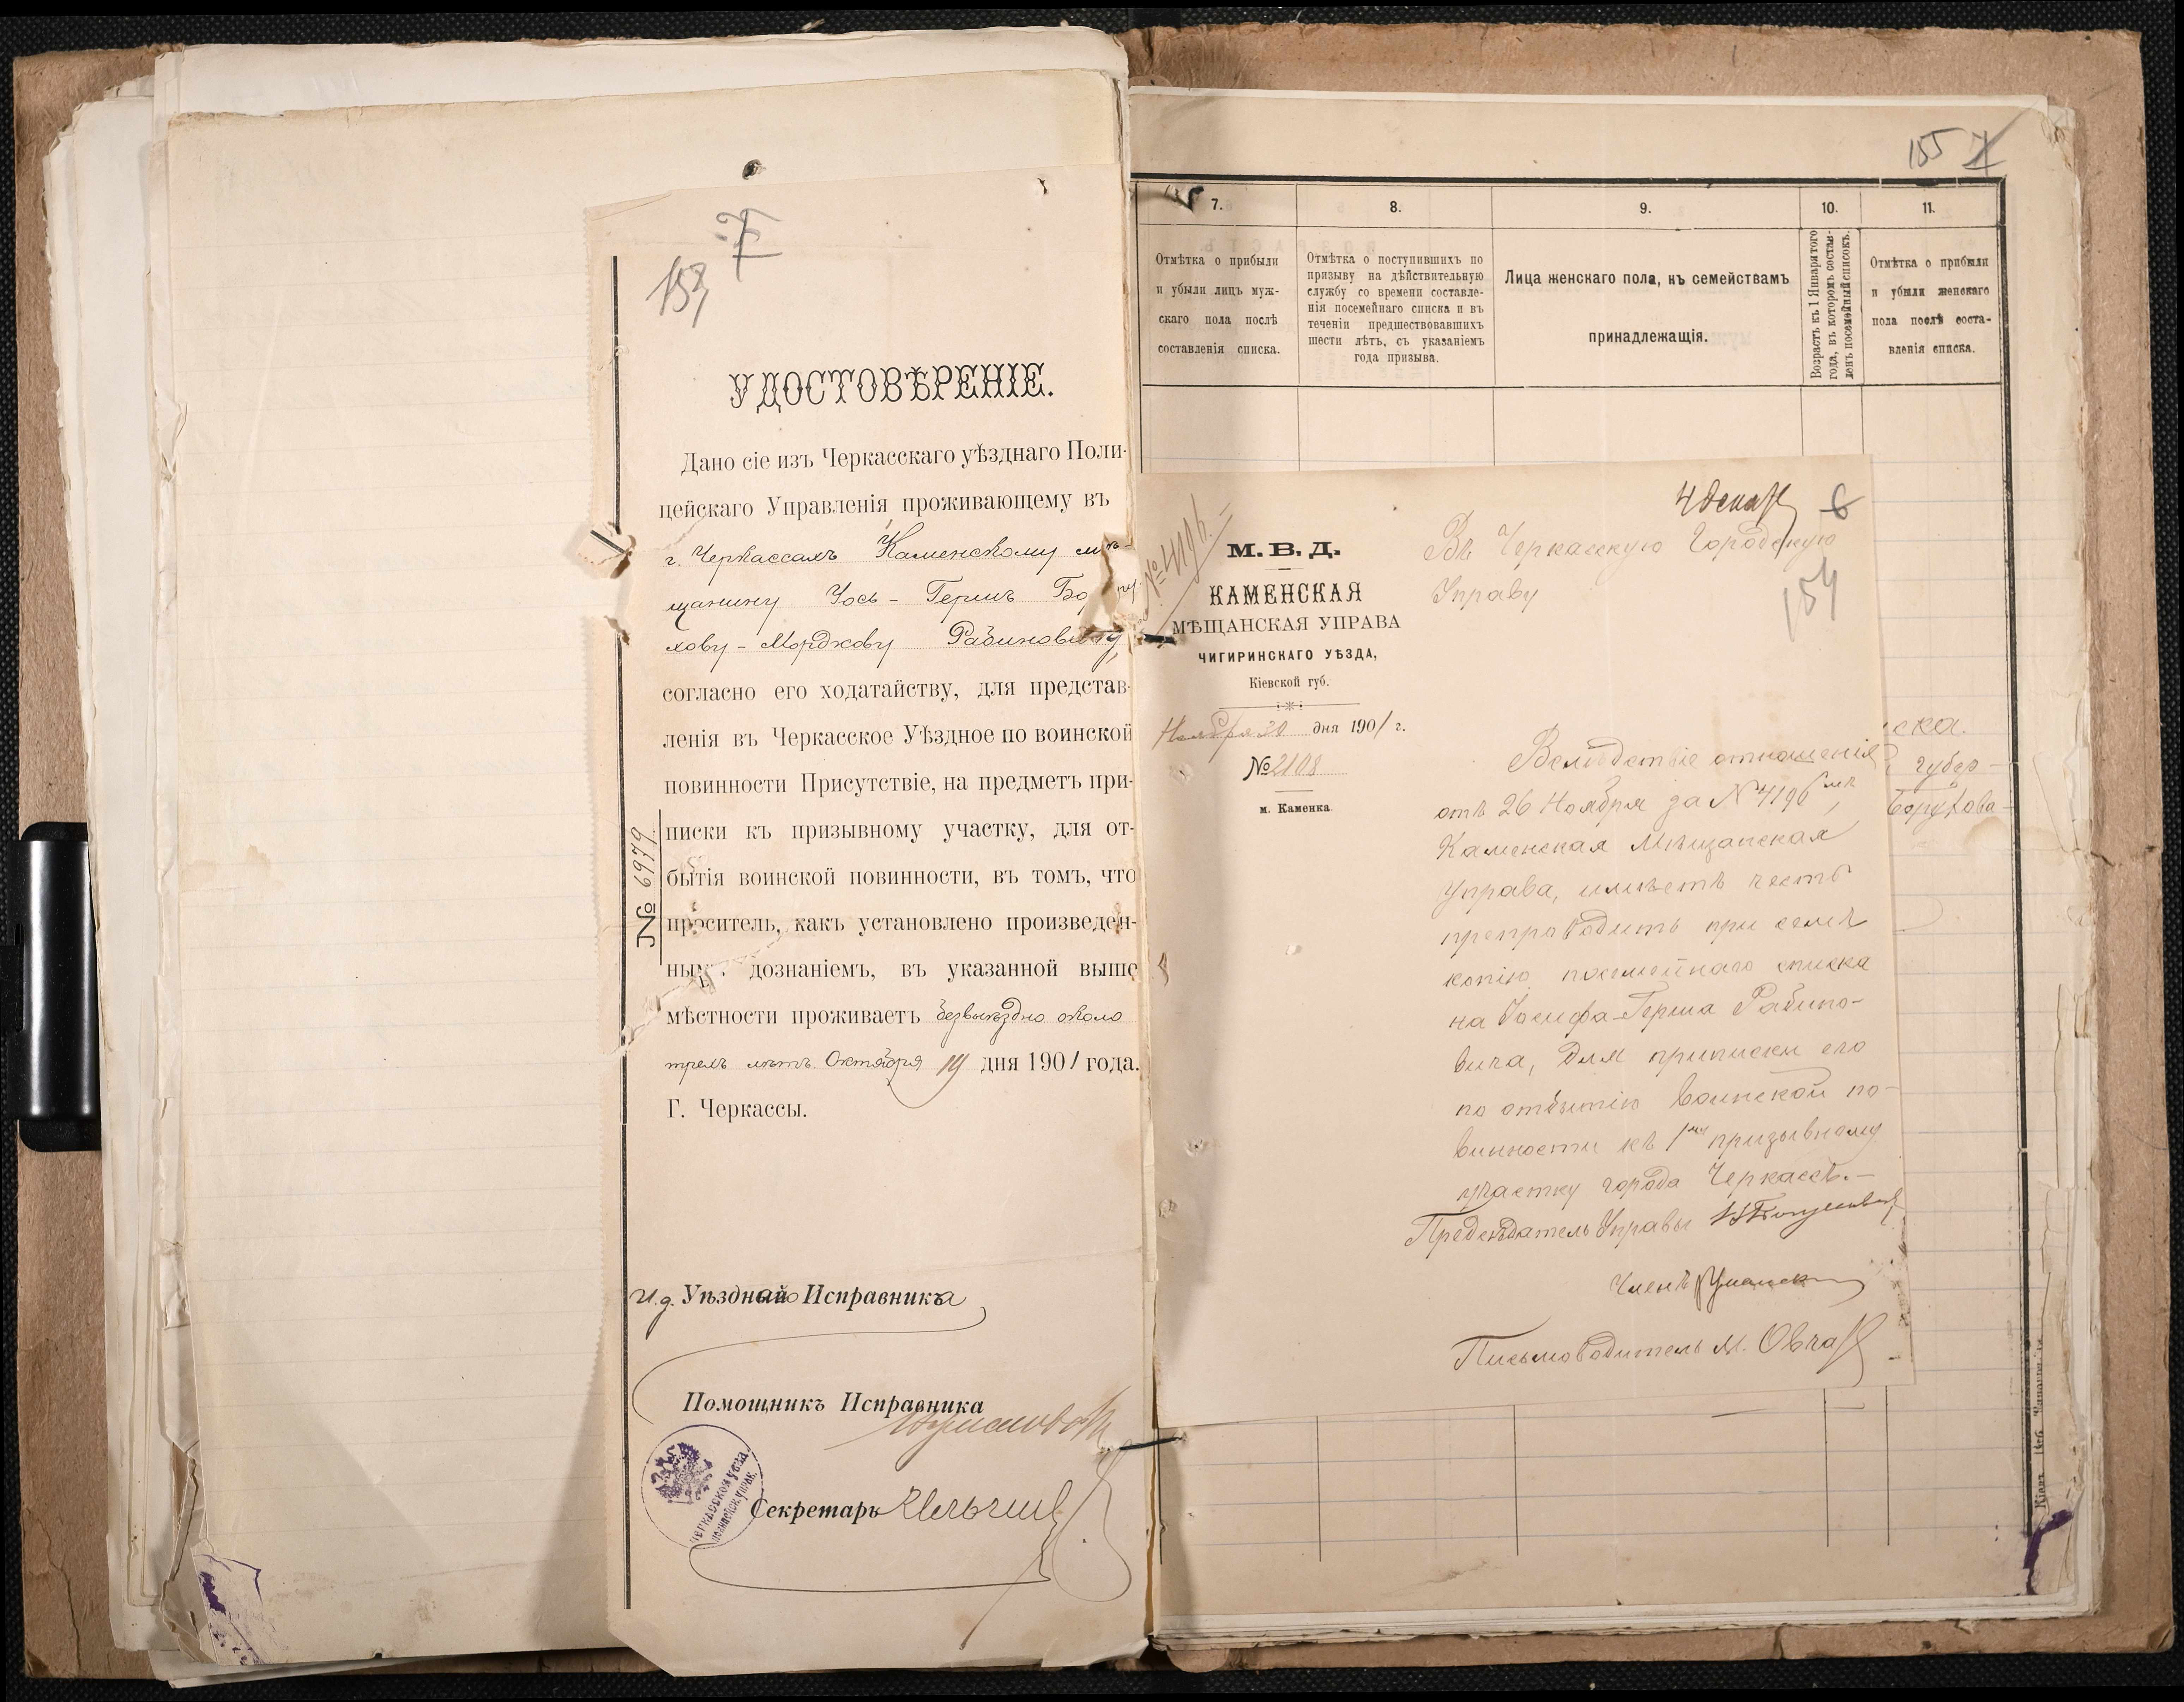 7
153
УДОСТОВѢРЕНІЕ.
Дано сіе изъ Черкасскаго уѣзднаго Поли-
цейскаго Управленія проживающему въ
г. Черкассахъ Каменскому мѣ-
щанину Іось-Гершъ Бо
хову-Мордкову Рабиновичу,
согласно его ходатайству, для представ-
ленія въ Черкасское Уѣздное по воинской
повинности Присутствіе, на предметъ при-
писки къ призывному участку, для от-
бытія воинской повинности, въ томъ, что
проситель, какъ установлено произведен-
нымъ дознаніемъ, въ указанной выше
мѣстности проживаетъ безвыѣздно около
трехъ лѣтъ. Октября 19 дня 1901 года.
Г. Черкассы.
№ 6979.
И.д. Уѣзднаго Исправника
Помощникъ Исправника
Секретарь
ЧЕРКАССКОЕ УѢЗД.
ПОЛИЦЕЙСК. УПРАВ.
155 7
7.
8.
9.
10.
11.
Отмѣтка о прибыли
и убыли лицъ муж-
скаго пола послѣ
составленія списка.
Отмѣтка о поступившихъ по
призыву на дѣйствительную
службу со времени составле-
нія посемейнаго списка и въ
теченіи предшествовавшихъ
шести лѣтъ, съ указаніемъ
года призыва.
Лица женскаго пола, къ семействамъ
принадлежащія.
Возрастъ къ 1 Января того
года, въ которомъ состав-
ленъ посемейный списокъ.
Отмѣтка о прибыли
и убыли женскаго
пола послѣ соста-
вленія списка.
4 декаб 6
154
№ 4196.
М. В. Д.
КАМЕНСКАЯ
МѢЩАНСКАЯ УПРАВА
ЧИГИРИНСКАГО УѢЗДА,
Кіевской губ.
Ноября 30 дня 1901 г.
№ 2108
м. Каменка.
Въ Черкасскую Городскую
Управу
Вслѣдствіе отношенія
отъ 26 Ноября за № 4196,
Каменская Мѣщанская
Управа, имѣетъ честь
препроводить при семъ
копію посемейнаго списка
на Іосифа-Герша Рабино-
вича, для приписки его
по отбытію воинской по-
винности къ 1му призывному
участку города Черкассъ.-
Предсѣдатель Управы
Членъ
Письмоводитель М. Овчар
ска.
губер-
Борухова-